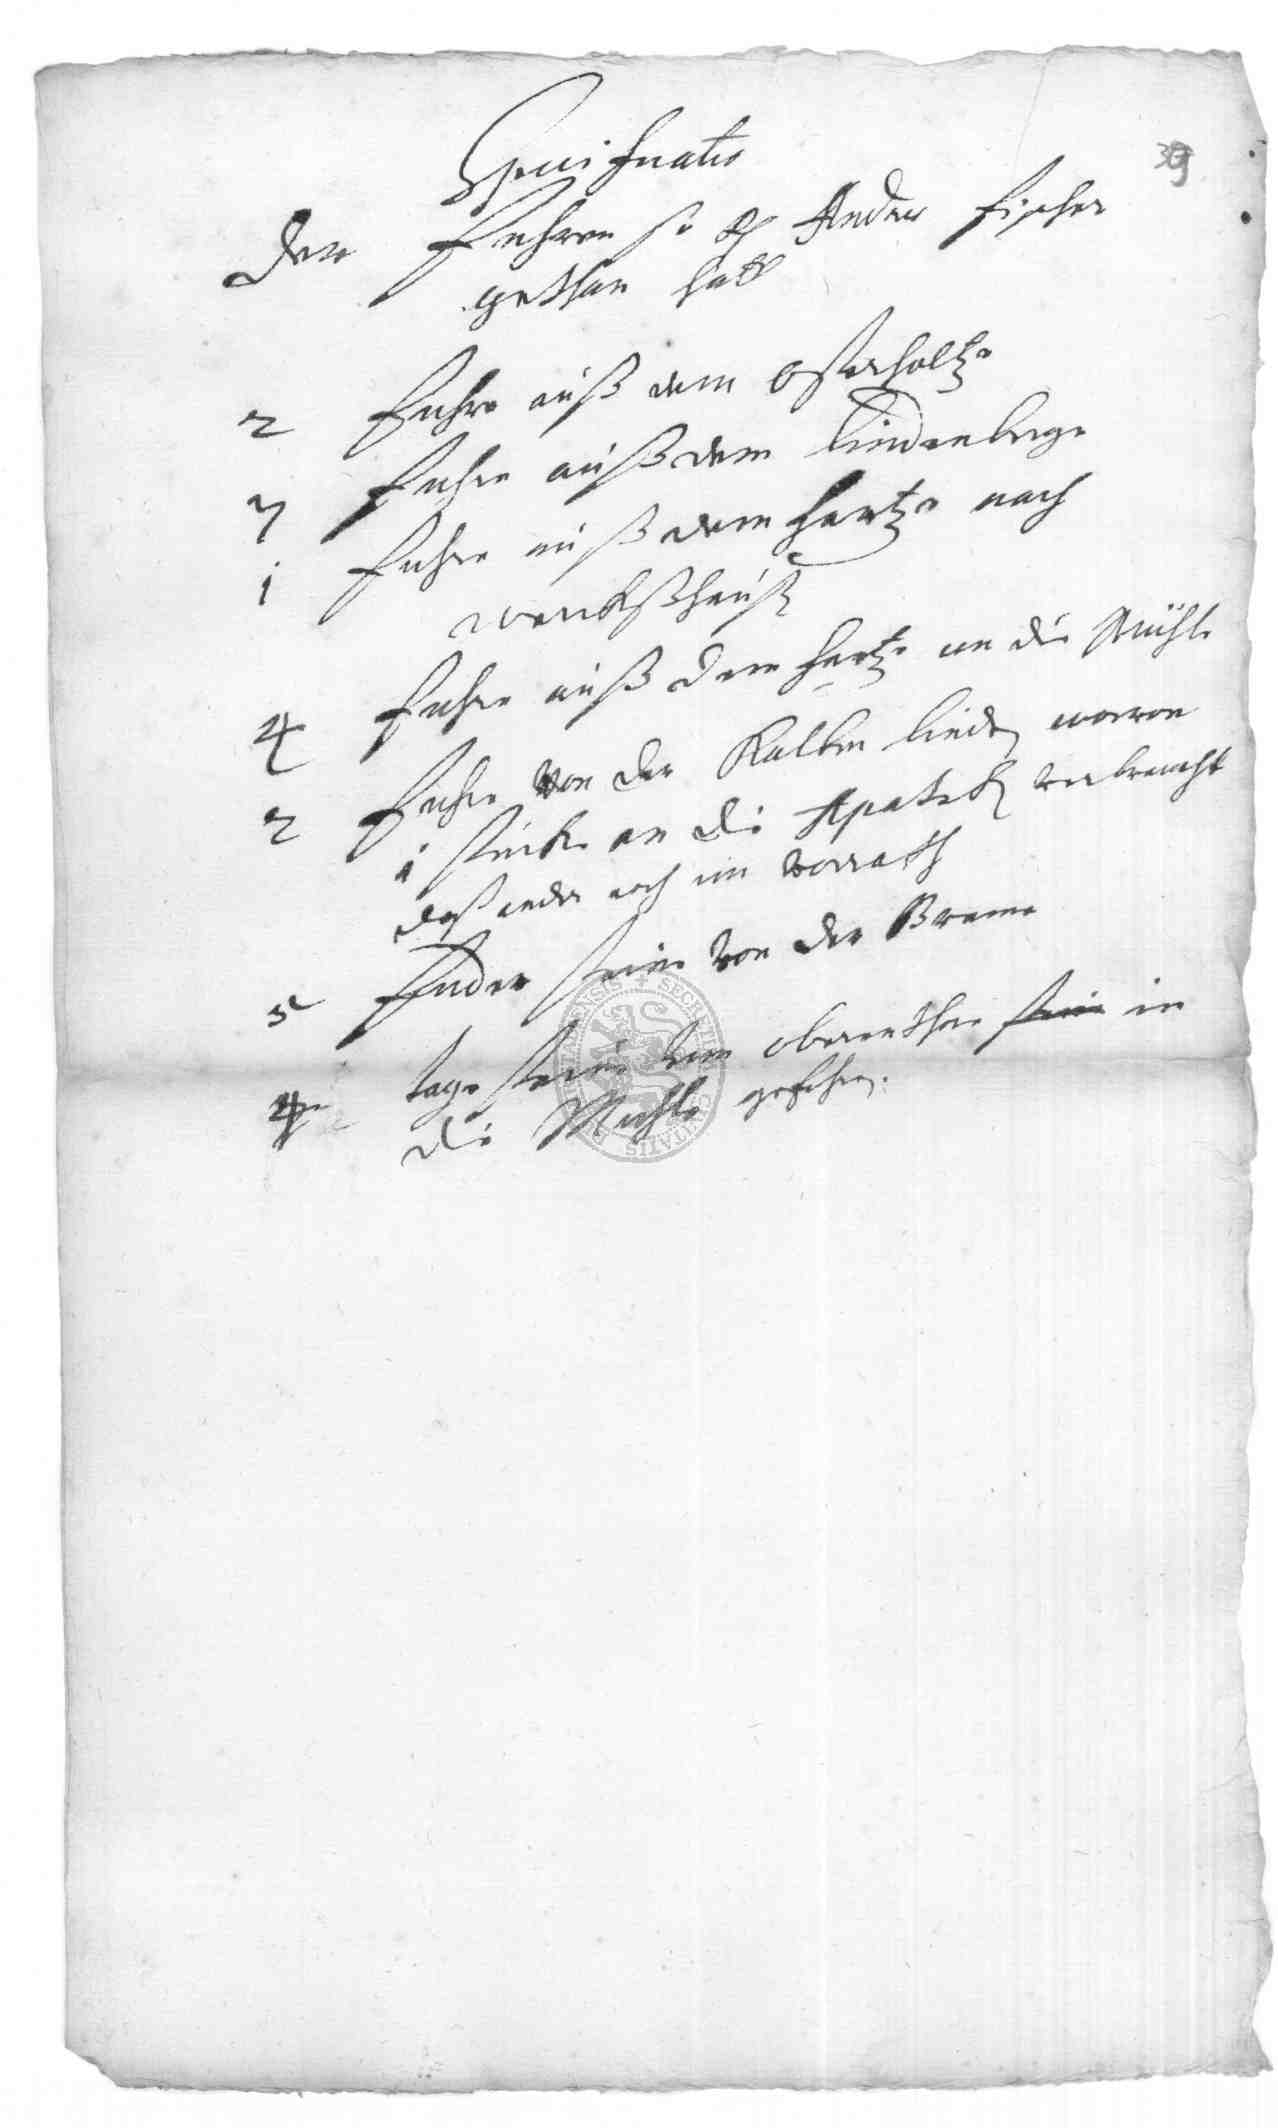 Specificatio
39
der fuhren so H Andres fischer
gethan hatt
2 fuhre auß dem Osterholtze
7 fuhre auß dem lindenberge
1 fuhre auß dem hartze nach
4 fuhre auß dem hartze an die Mühle
2 fuhre von der Kalten linden worvon
1 stücke an die Apoteken verbraucht
daß ander noch im vorrath
5 fuder steine von der Breme
4 tage steine vom oberenthor in
die Muhle gefahren.
SECRETUM